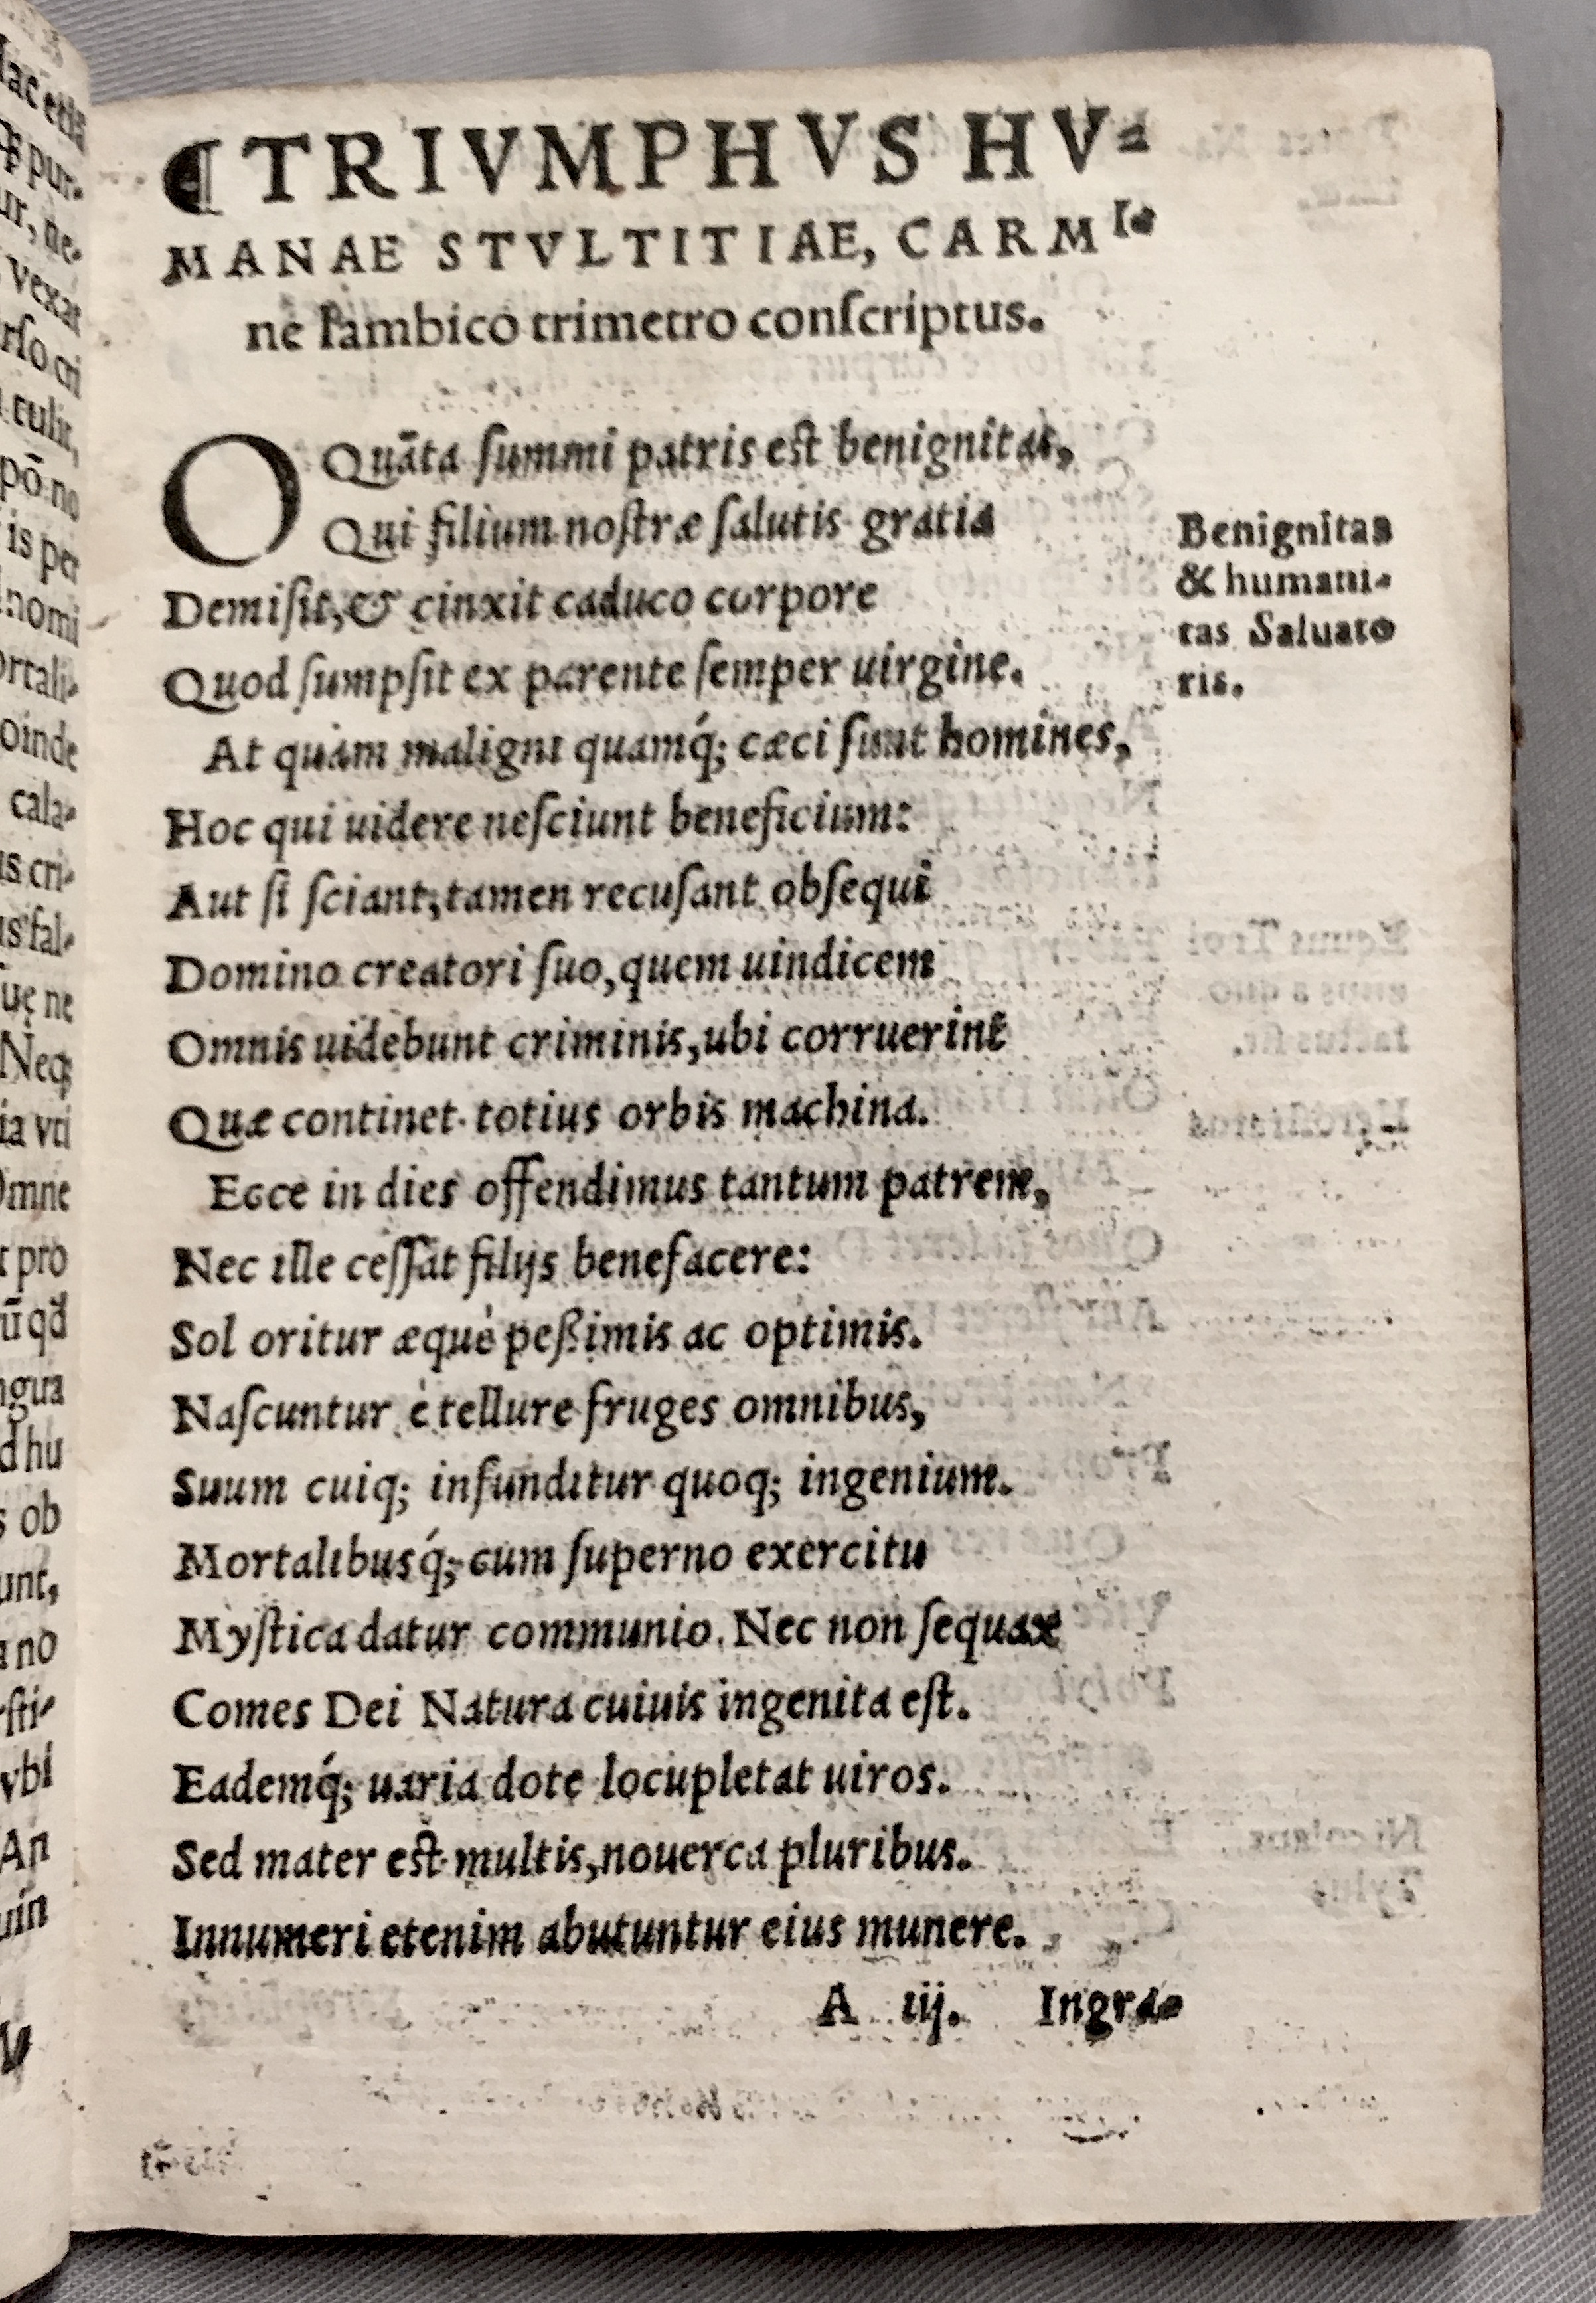 ¶TRIVMPHVS HV=
MANAE STVLTITIAE, CARMI-
ne Iambico trimetro conſcriptus.
O Quāta ſummi patris eſt benignitas,
Qui filium noſtræ ſalutis gratia
Demiſit, & cinxit caduco corpore
Quod ſumpſit ex parente ſemper uirgine.
At quàm maligni quamq́; cæci ſunt homines,
Hoc qui uidere neſciunt beneficium:
Aut ſi ſciant, tamen recuſant obſequi
Domino creatori ſuo, quem uindicem
Omnis uidebunt criminis, ubi corruerint
Quæ continet totius orbis machina.
Ecce in dies offendimus tantum patrem,
Nec ille ceſſat filijs benefacere:
Sol oritur æquè peßimis ac optimis.
Naſcuntur è tellure fruges omnibus,
Suum cuiq; infunditur quoq; ingenium.
Mortalibusq́; cum ſuperno exercitu
Myſtica datur communio. Nec non ſequax
Comes Dei Natura cuiuis ingenita eſt.
Eademq́; uaria dote locupletat uiros.
Sed mater eſt multis, nouerca pluribus.
Innumeri etenim abutuntur eius munere.
A iij. Ingra-
Benignitas
& humani-
tas Saluato
ris.